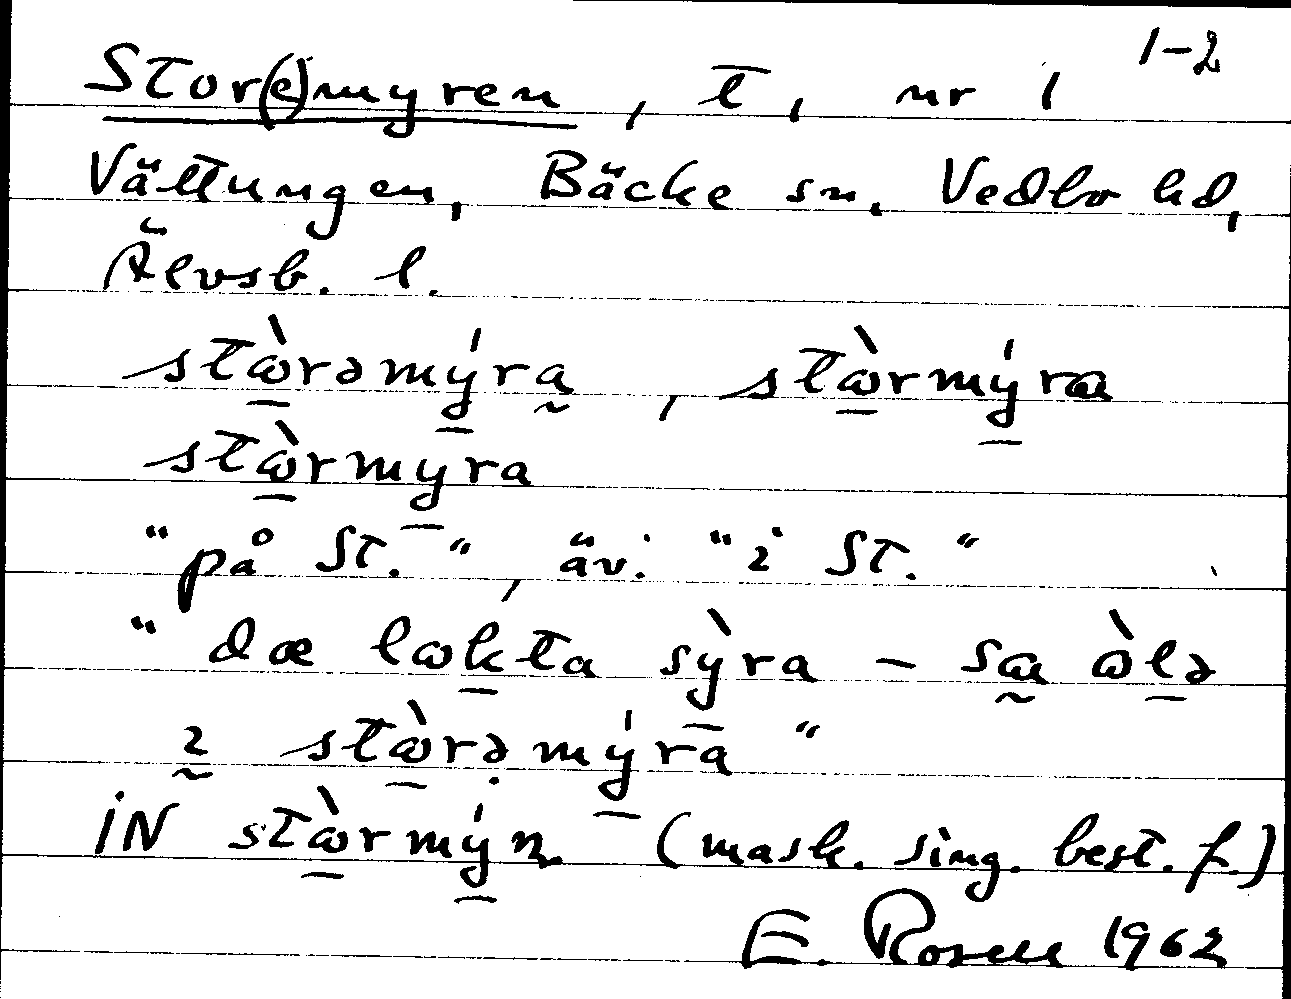 1-2
Stor(e)myren, t, nr 1
Vättungen, Bäcke sn. Vedbo hd,
Älvsb. l.
stɷ̀rəmýra, stɷ̀rmýra
stɷ̀rmyra
"på St.", äv. "i St."
"dæ lɷkta sỳra – sɑ ɷ̀lə
ɩ stɷ̀rəmýra"
IN stɷ̀rmýn (mask. sing. best. f.)
E. Rosell 1962